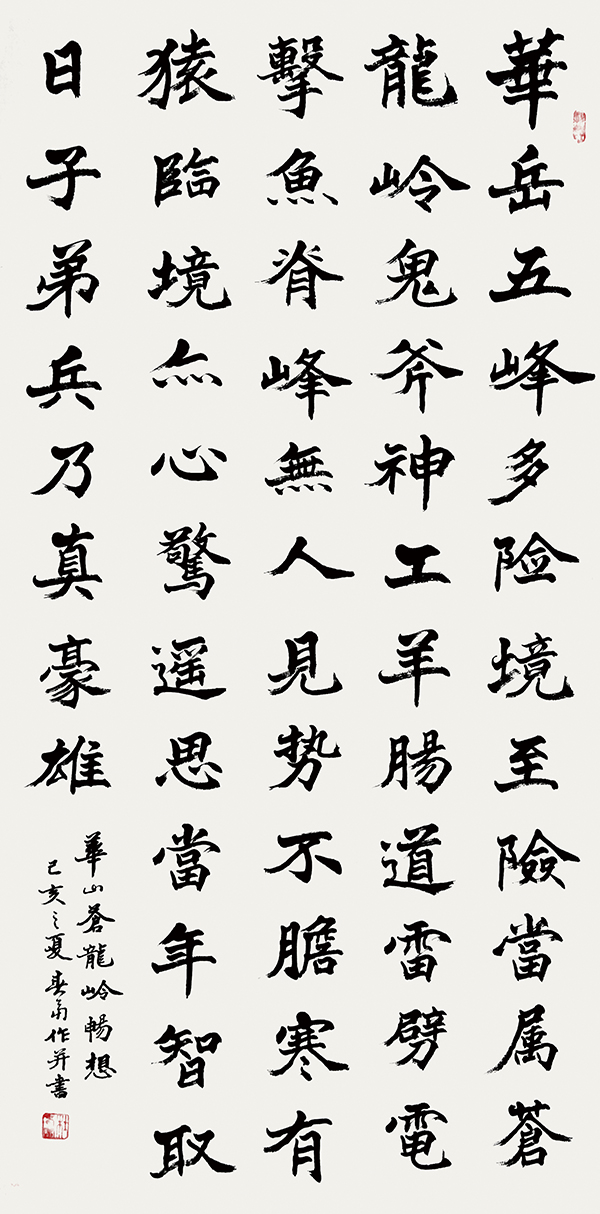 華岳五峰多险境至險當属蒼
龍岭鬼斧神工羊腸道雷劈電
擊魚脊峰無人見势不膽寒有
猿臨境亦心驚遥思當年智取
日子弟兵乃真豪雄
華山蒼龍岭暢想
己亥之夏春作并書